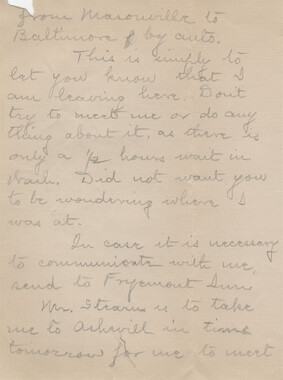 from Masonville to
Baltimore by auto.
This is simply to
let you know that I
am leaving here. Don't
try to meet me or do any
thing about it, as there is
only a 1/2 hours wait in
Wash. Did not want you
to be wondering where I
was at.
In case it is necessary
to communicate with me,
send to Fryemont Inn
Mr. Stearns is to take
me to Ashvill in time
tomorrow for me to meet